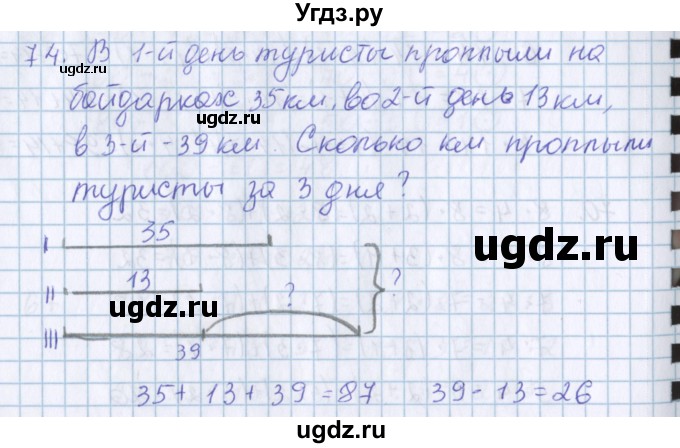 Угдз.ру
74. В 1-й день туристы проплыли на
байдарках 35 км, во 2-й день 13 км,
в 3-й - 39 км. Сколько км проплыли
туристы за 3 дня?
I 35
II 13 ? ?
III 39
35 + 13 + 39 = 87 39 - 13 = 26
ugdz.ru
ugdz.ru
ugdz.ru
ugdz.ru
ugdz.ru